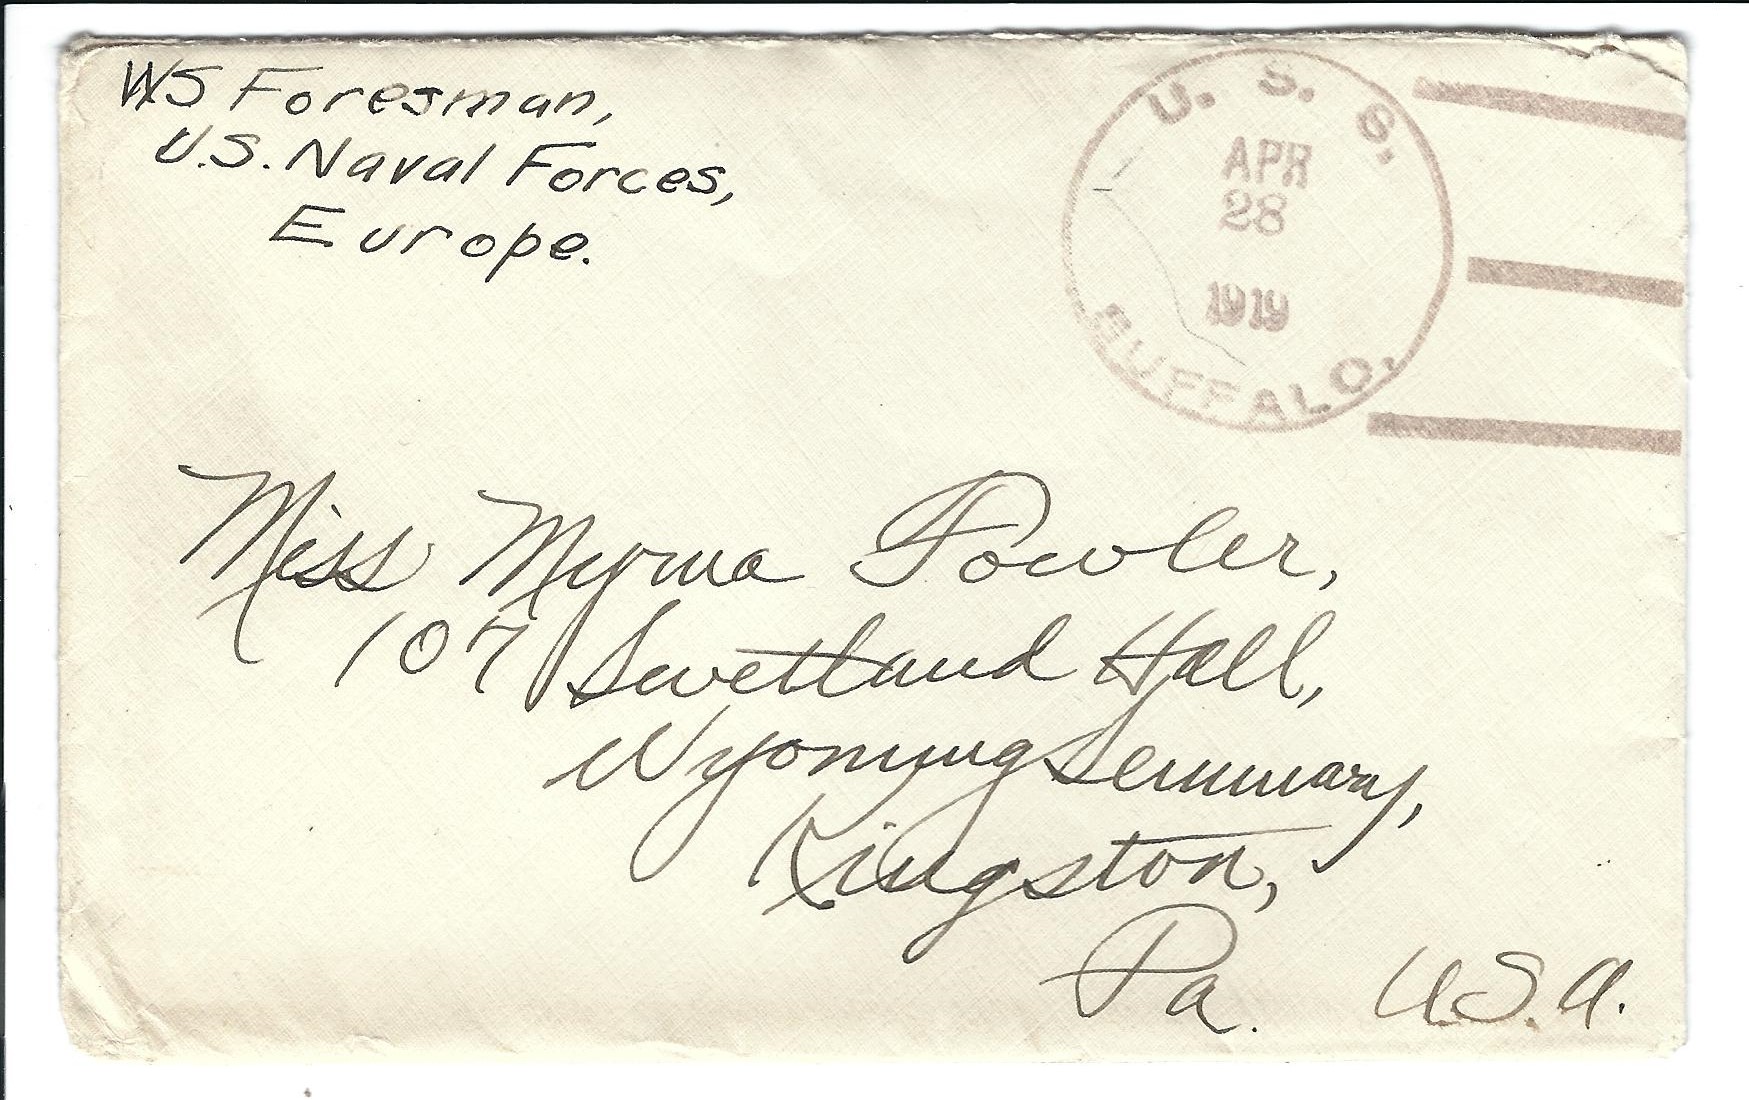 WS Foresman,
U.S. Naval Forces,
Europe.
U. S. S.
APR
28
1919
BUFFALO.
Miss Myrma Fowler,
107 Swetland Hall,
Wyoming Seminary,
Kingston,
Pa. U.S.A.